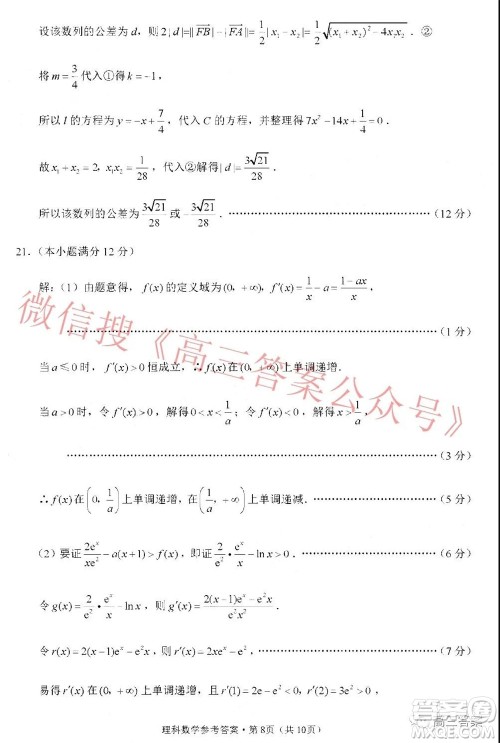 设该数列的公差为 d，则 2|d|=||FB|-|FA||=1/2|x₁-x₂|=1/2√((x₁+x₂)²-4x₁x₂). ②
将 m=3/4 代入①得 k=-1，
所以 l 的方程为 y=-x+7/4，代入 C 的方程，并整理得 7x²-14x+1/4=0.
故 x₁+x₂=2, x₁x₂=1/28，代入②解得|d|=3√21/28.
所以该数列的公差为 3√21/28 或 -3√21/28. ……………………（12 分）
21.（本小题满分 12 分）
解：（1）由题意得，f(x)的定义域为(0, +∞), f′(x)=1/x-a=(1-ax)/x，
……………………（1 分）
当 a≤0 时，f′(x)>0 恒成立，∴f(x)在(0, +∞)上单调递增.
当 a>0 时，令 f′(x)>0，解得 0<x<1/a；令 f′(x)<0，解得 x>1/a，
……………………（3 分）
∴f(x)在(0, 1/a)上单调递增，在(1/a, +∞)上单调递减. ……………………（5 分）
（2）要证 2eˣ/xe²-a(x+1)>f(x)，即证 2/e²•eˣ/x-ln x>0. ……………………（6 分）
令 g(x)=2/e²•eˣ/x-ln x，则 g′(x)=(2(x-1)eˣ-e²x)/e²x²，
令 r(x)=2(x-1)eˣ-e²x，则 r′(x)=2xeˣ-e²， ……………………（7 分）
易得 r′(x)在(0, +∞)上单调递增，
理科数学参考答案·第 8页（共 10页）
微信搜《高三答案公众号》
高三答案